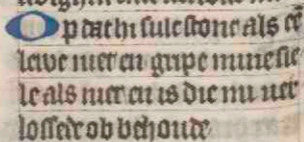 Op dat hi sulestone als et
lewe niet en gripe mine sie
le als niet en is die mi ver
losset ob behoude